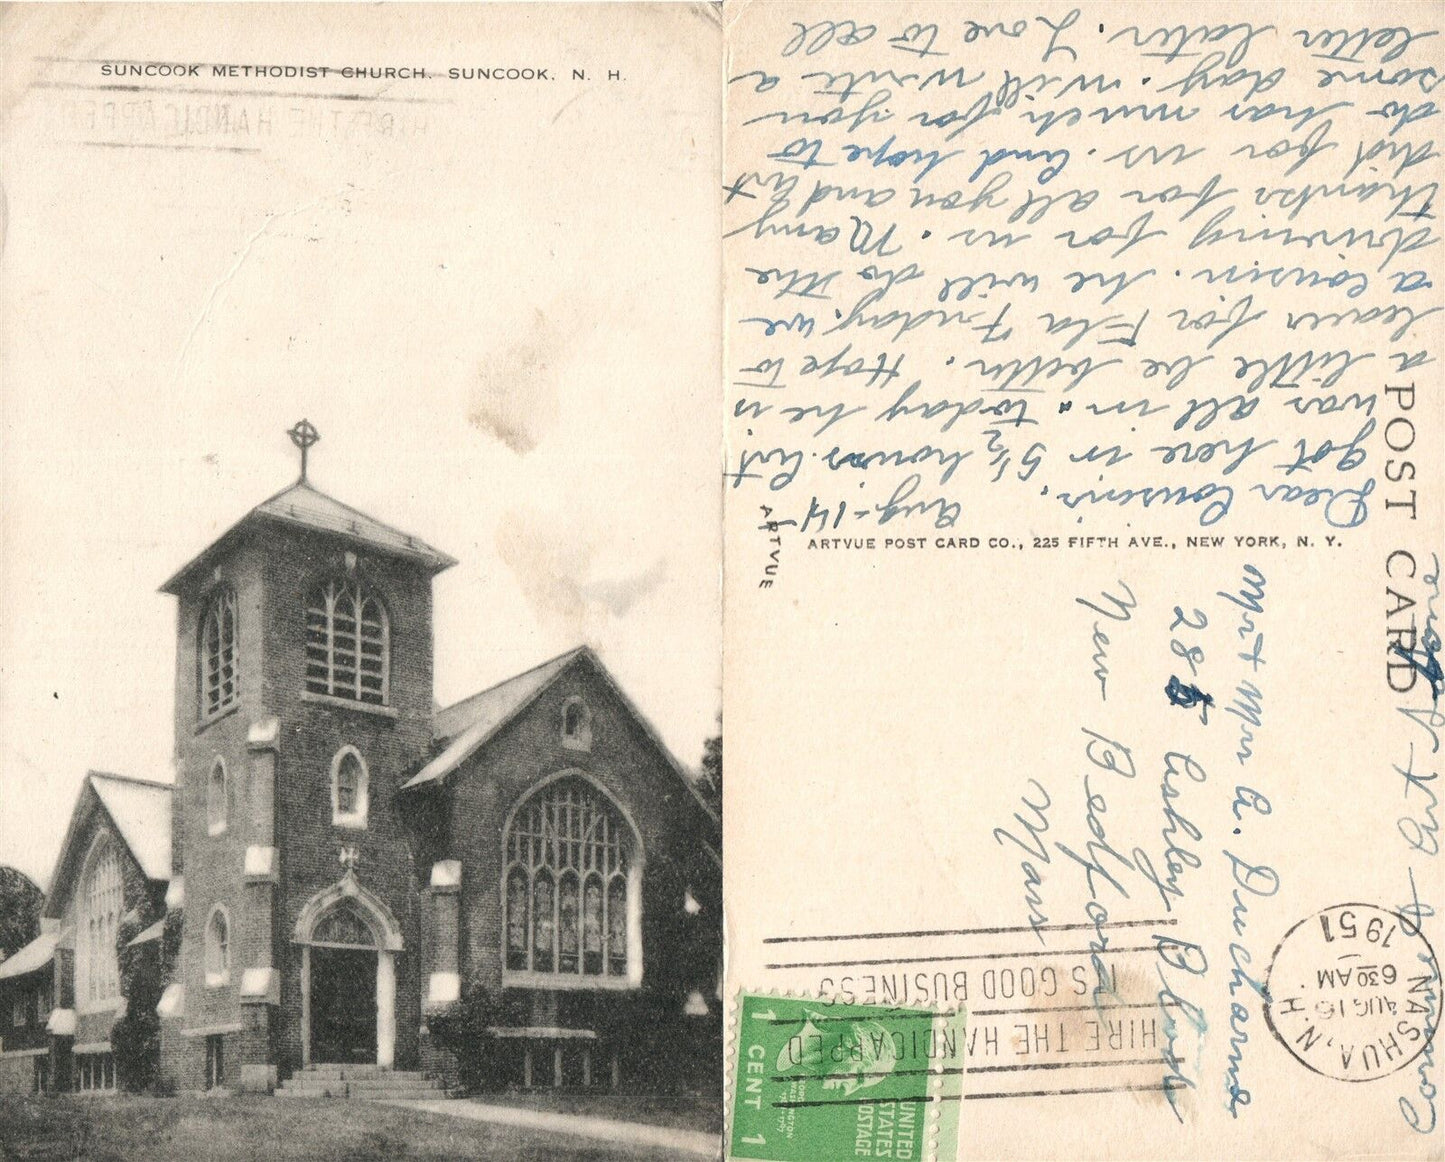 SUNCOOK METHODIST CHURCH, SUNCOOK, N. H.
HIRE THE HANDICAPPED
POST CARD
Aug-14
Dear Cousins.
got here in 5½ hours. Art
was all in. today he is
a little be better. Hope to
leave for Ela Friday. we
a cousin. he will do the
driving for us. Many
thanks for all you and Art
did for us. And hope to
do has much for you
some day. will write a
letter later. Love to all
Cousins
ARTVUE
ARTVUE POST CARD CO., 225 FIFTH AVE., NEW YORK, N. Y.
Mr + Mrs A. Ducharme
285 Ashley Blvd
New Bedford
Mass
NASHUA, N.H.
AUG 16
6 30 AM
1951
HIRE THE HANDICAPPED
IT'S GOOD BUSINESS
UNITED
STATES
POSTAGE
1 CENT 1